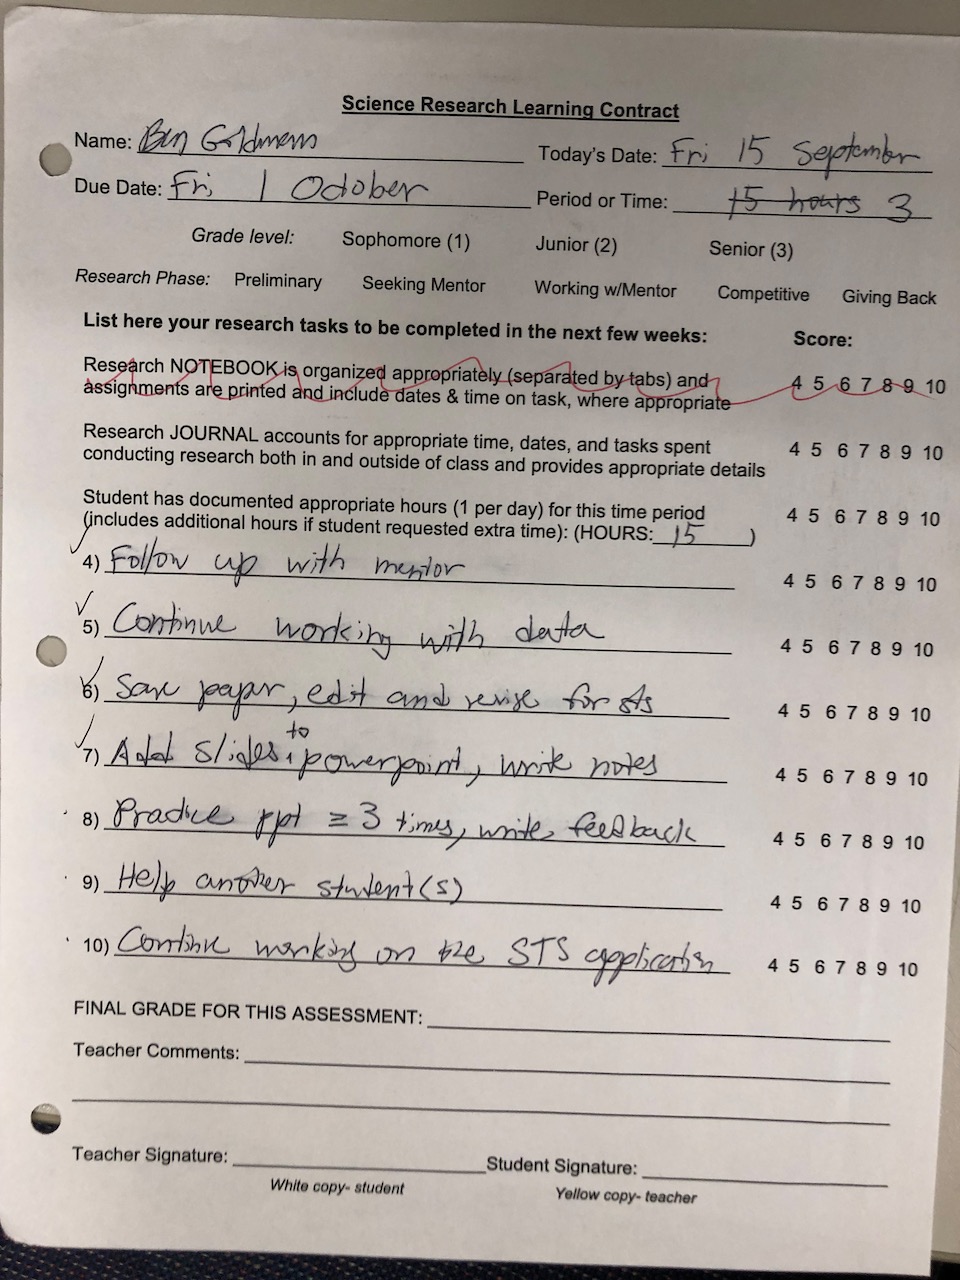 Science Research Learning Contract
Name: Ben Goldmann Today's Date: Fri 15 September
Due Date: Fri 1 October Period or Time: 15 hours 3
Grade level: Sophomore (1) Junior (2) Senior (3)
Research Phase: Preliminary Seeking Mentor Working w/Mentor Competitive Giving Back
List here your research tasks to be completed in the next few weeks: Score:
Research NOTEBOOK is organized appropriately (separated by tabs) and
assignments are printed and include dates & time on task, where appropriate 4 5 6 7 8 9 10
Research JOURNAL accounts for appropriate time, dates, and tasks spent
conducting research both in and outside of class and provides appropriate details 4 5 6 7 8 9 10
Student has documented appropriate hours (1 per day) for this time period
(includes additional hours if student requested extra time): (HOURS: 15 ) 4 5 6 7 8 9 10
4) Follow up with mentor 4 5 6 7 8 9 10
5) Continue working with data 4 5 6 7 8 9 10
6) paper, edit and revise for sts 4 5 6 7 8 9 10
7) Add slides to powerpoint, write notes 4 5 6 7 8 9 10
8) Practice ppt ≥ 3 times, write feedback 4 5 6 7 8 9 10
9) Help another student(s) 4 5 6 7 8 9 10
10) Continue working on the STS application 4 5 6 7 8 9 10
FINAL GRADE FOR THIS ASSESSMENT:
Teacher Comments:
Teacher Signature: Student Signature:
White copy- student Yellow copy- teacher